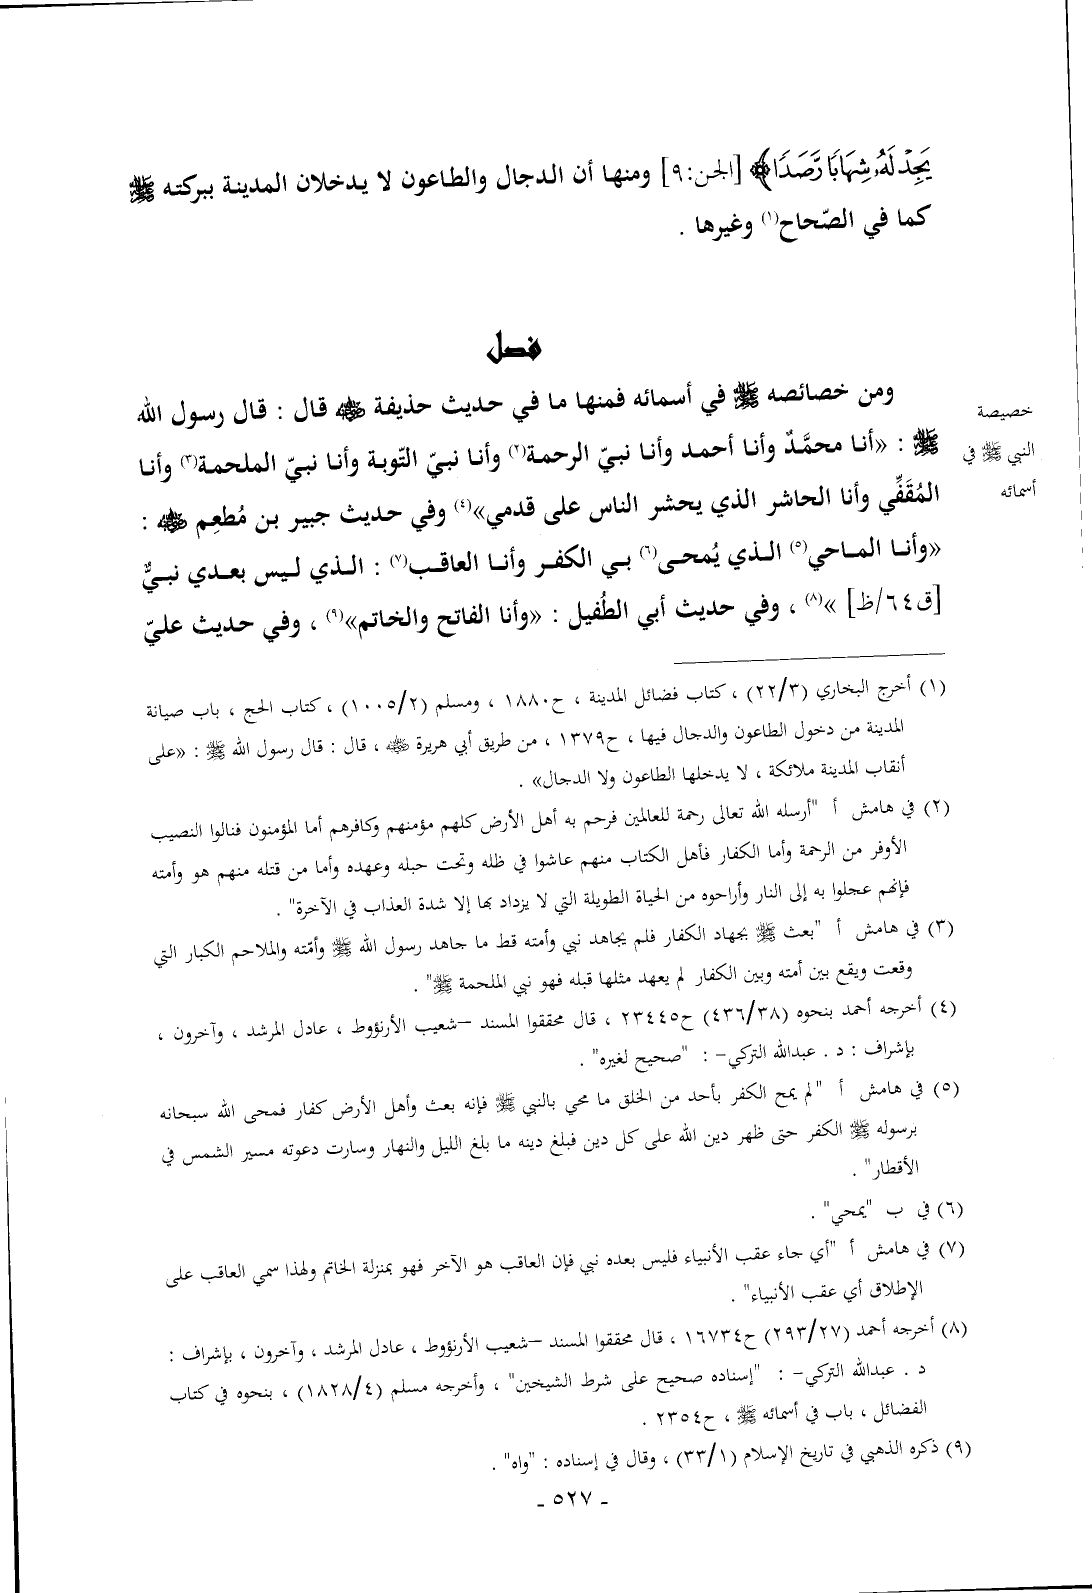 يَجِدْ لَهُ شِهَابًا رَّصَدًا﴾ [الجن:٩] ومنها أن الدجال والطاعون لا يدخلان المدينة ببركته ﷺ
كما في الصّحاح(١) وغيرها .
فصل
ومن خصائصه ﷺ في أسمائه فمنها ما في حديث حذيفة ﵁ قال : قال رسول الله
خصيصة
النبي ﷺ في
أسمائه
ﷺ : «أنا محمَّدٌ وأنا أحمد وأنا نبيّ الرحمة(٢) وأنا نبيّ التّوبة وأنا نبيّ الملحمة(٣) وأنا
المُقَفِّي وأنا الحاشر الذي يحشر الناس على قدمي»(٤) وفي حديث جبير بن مُطعِم ﵁ :
«وأنا الماحي(٥) الذي يُمحى(٦) بي الكفر وأنا العاقب(٧) : الذي ليس بعدي نبيٌّ
[ق٦٤/ظ] »(٨) ، وفي حديث أبي الطُفيل : «وأنا الفاتح والخاتم»(٩) ، وفي حديث عليّ
(١) أخرج البخاري (٢٢/٣) ، كتاب فضائل المدينة ، ح١٨٨٠ ، ومسلم (١٠٠٥/٢) ، كتاب الحج ، باب صيانة
المدينة من دخول الطاعون والدجال فيها ، ح١٣٧٩ ، من طريق أبي هريرة ﵁ ، قال : قال رسول الله ﷺ : «على
أنقاب المدينة ملائكة ، لا يدخلها الطاعون ولا الدجال» .
(٢) في هامش أ "أرسله الله تعالى رحمة للعالمين فرحم به أهل الأرض كلهم مؤمنهم وكافرهم أما المؤمنون فنالوا النصيب
الأوفر من الرحمة وأما الكفار فأهل الكتاب منهم عاشوا في ظله وتحت حبله وعهده وأما من قتله منهم هو وأمته
فإنهم عجلوا به إلى النار وأراحوه من الحياة الطويلة التي لا يزداد بها إلا شدة العذاب في الآخرة" .
(٣) في هامش أ "بعث ﷺ بجهاد الكفار فلم يجاهد نبي وأمته قط ما جاهد رسول الله ﷺ وأمّته والملاحم الكبار التي
وقعت ويقع بين أمته وبين الكفار لم يعهد مثلها قبله فهو نبي الملحمة ﷺ" .
(٤) أخرجه أحمد بنحوه (٤٣٦/٣٨) ح٢٣٤٤٥ ، قال محققوا المسند –شعيب الأرنؤوط ، عادل المرشد ، وآخرون ،
بإشراف : د . عبدالله التركي– : "صحيح لغيره" .
(٥) في هامش أ "لم يمح الكفر بأحد من الخلق ما محي بالنبي ﷺ فإنه بعث وأهل الأرض كفار فمحى الله سبحانه
برسوله ﷺ الكفر حتى ظهر دين الله على كل دين فبلغ دينه ما بلغ الليل والنهار وسارت دعوته مسير الشمس في
الأقطار" .
(٦) في ب "يمحي" .
(٧) في هامش أ "أي جاء عقب الأنبياء فليس بعده نبي فإن العاقب هو الآخر فهو بمنزلة الخاتم ولهذا سمي العاقب على
الإطلاق أي عقب الأنبياء" .
(٨) أخرجه أحمد (٢٩٣/٢٧) ح١٦٧٣٤ ، قال محققوا المسند –شعيب الأرنؤوط ، عادل المرشد ، وآخرون ، بإشراف :
د . عبدالله التركي– : "إسناده صحيح على شرط الشيخين" ، وأخرجه مسلم (١٨٢٨/٤) ، بنحوه في كتاب
الفضائل ، باب في أسمائه ﷺ ، ح٢٣٥٤ .
(٩) ذكره الذهبي في تاريخ الإسلام (٣٣/١) ، وقال في إسناده : "واه" .
- ٥٢٧ -